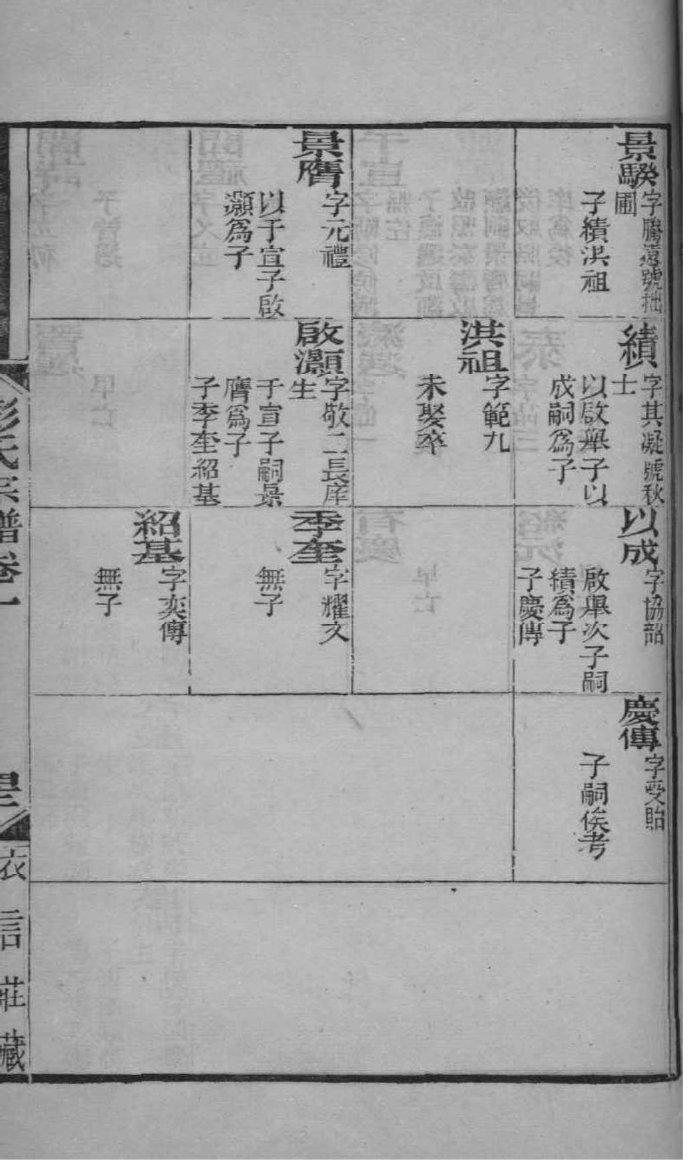 景騤
字騰遠號拙
圃
子績洪祖
景膺
字元禮
以子宣子啟
灝為子
績
字其凝號秋
士
以啟畢子以
成嗣為子
洪祖
字範九
未娶卒
啟灝
字敬二長庠
生
子宣子嗣景
膺為子
子季奎紹基
以成
字協韶
啟畢次子嗣
績為子
子慶傳
季奎
字耀文
無子
紹基
字奕傳
無子
慶傳
字受貽
子嗣俟考
彭氏宗譜卷一
衣言莊藏